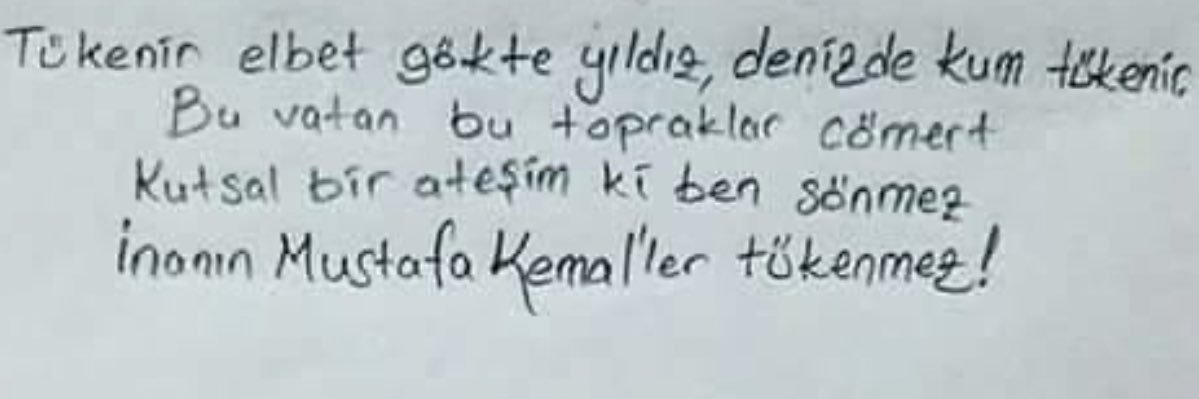 Tükenir elbet gökte yıldız, denizde kum tükenir
Bu vatan bu topraklar cömert
Kutsal bir ateşim ki ben sönmez
İnanın Mustafa Kemal'ler tükenmez!